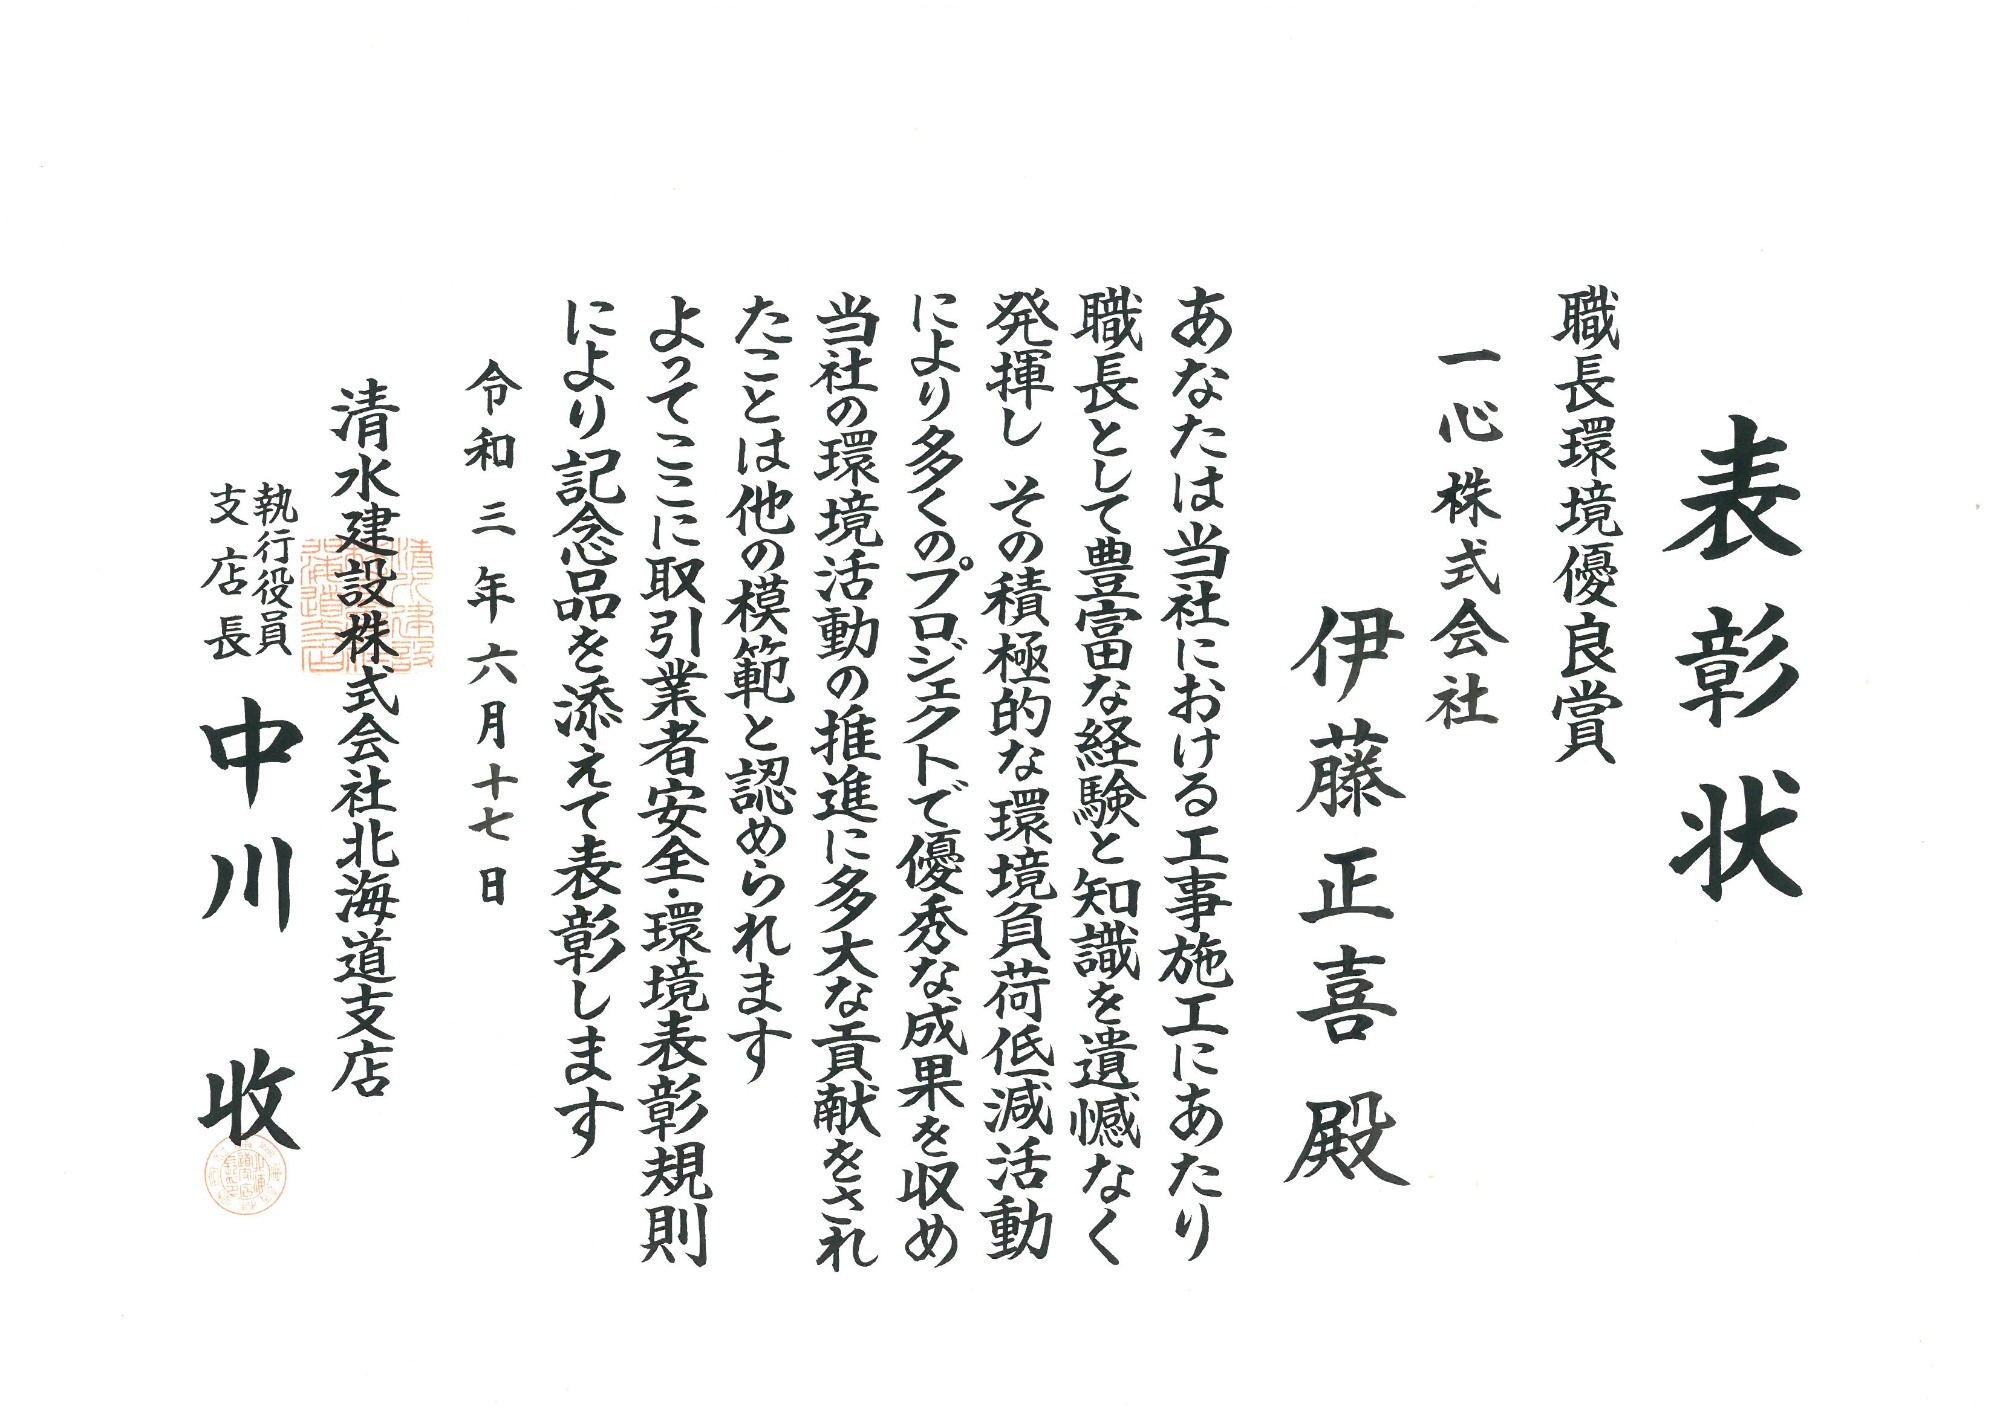 表彰状
職長環境優良賞
一心株式会社
伊藤正喜殿
あなたは当社における工事施工にあたり
職長として豊富な経験と知識を遺憾なく
発揮し その積極的な環境負荷低減活動
により多くのプロジェクトで優秀な成果を収め
当社の環境活動の推進に多大な貢献をされ
たことは他の模範と認められます
よってここに取引業者安全・環境表彰規則
により記念品を添えて表彰します
令和三年六月十七日
清水建設株式会社北海道支店
執行役員
支店長
中川 收